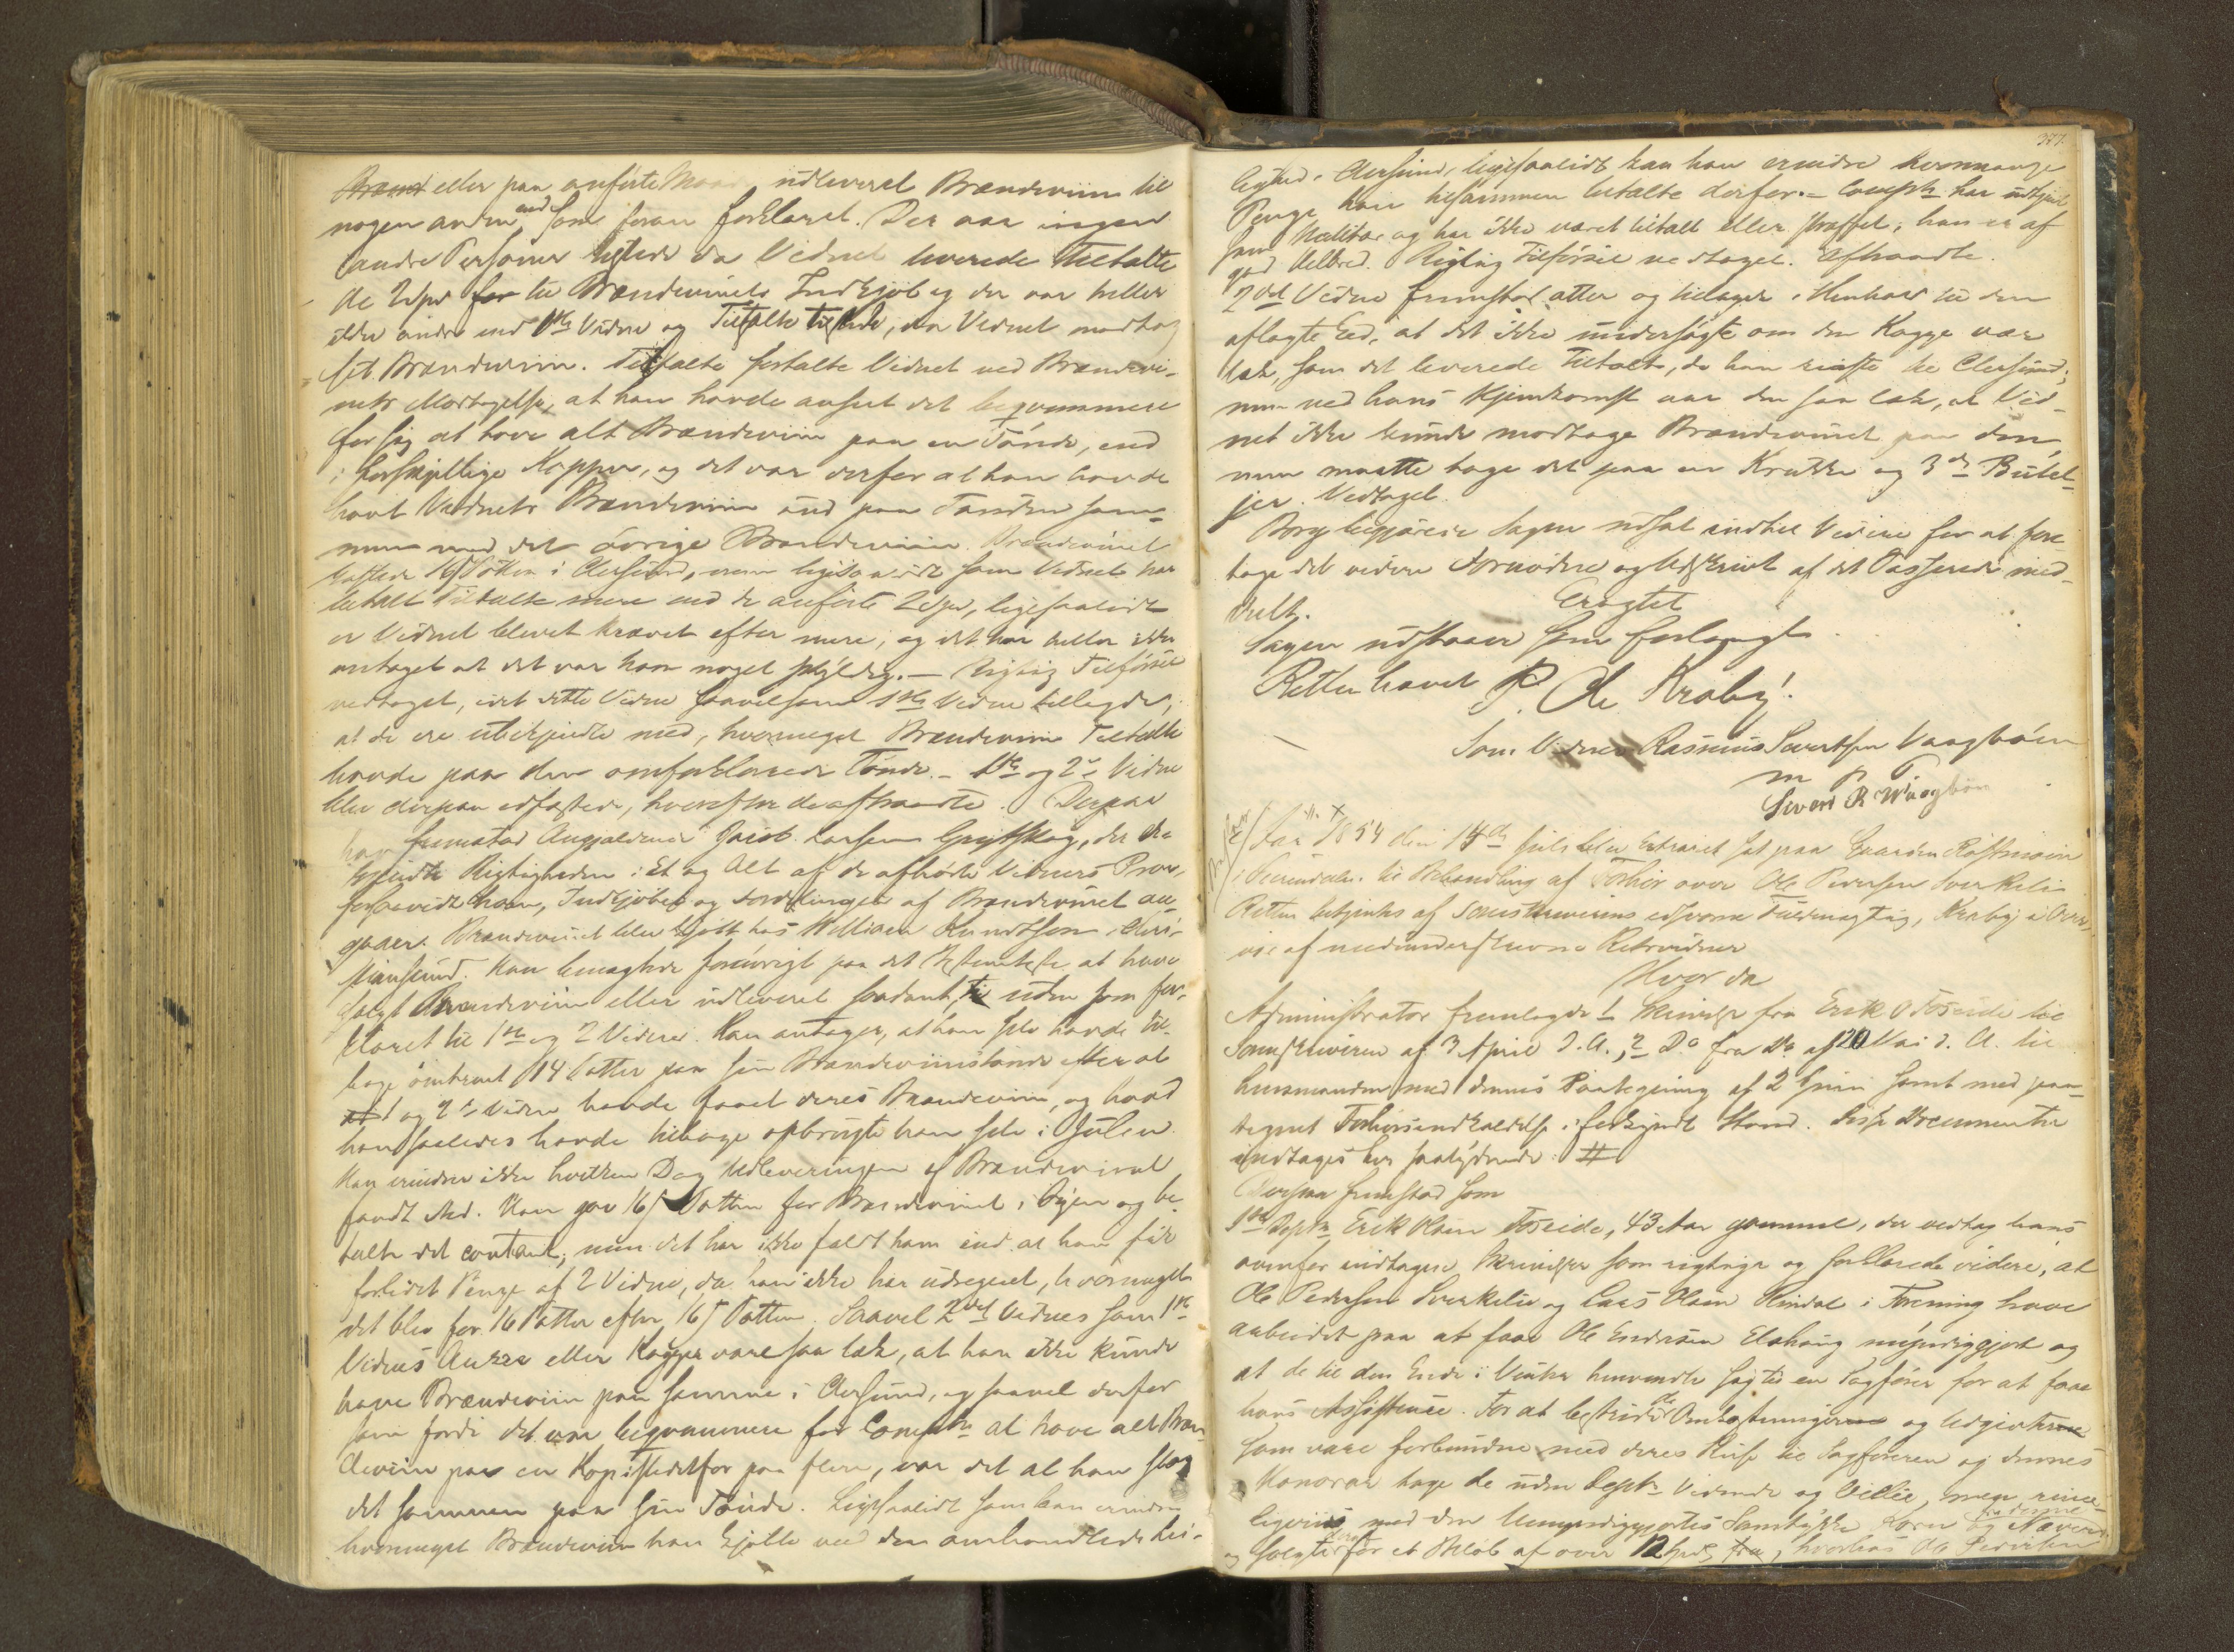 eller paa anførte Maade udleveret Brændeviin til
nogen anden end som foran forklaret. Der var ingen
andre Personer tilstede da Vidnet leverede Tiltalte
de 2 Spd for til Brændevinets Indkjøb og der var heller
ikke andre end 1ste Vidne og Tiltalte tilstede, da Vidnet modtog
sit Brændeviin. Tiltalte fortalte Vidnet ved Brændevi-
nets Modtagelse, at han havde anseet det beqvemmere
for sig at have alt Brændeviin paa en Tønde, end
i forskjellige Kopper, og det var derfor at han havde
havt Vidnets Brændeviin ind paa Tønden sam-
men med det øvrige Brændeviin. Brændevinet
kostede 16 [ß] Potten i Chrsund, men ligesaavidt som Vidnet har
betalt Tiltalte mere end de anførte 2 Spd, ligesaalidt
er Vidnet blevet krævet efter mere, og det har heller ikke
antaget at det var ham noget skyldig. — Rigtig Tilførsel
vedtaget, idet dette Vidne saavelsom 1ste Vidne tillagde,
at de ere ubekjendte med, hvormeget Brændeviin Tiltalte
havde paa den omforklarede Tønde. — 1ste og 2det Vidne
blev derpaa edfæstede, hvorefter de aftraadte. Derpaa
fremstod Angjældende Jacob Larsen, der
Rigtigheden i Et og Alt af de afhørte Vidners Prov,
forsaavidt ham, Indkjøbet og Fordelingen af Brændevinet an-
gaaer. Brændevinet blev kjøbt hos William Knudtson i Chri-
stiansund. Han benægtede forøvrigt paa det Bestemteste at have
solgt Brændeviin eller udleveret saadant, uden som for-
klaret til 1ste og 2 Vidne. Han antager, at han selv havde til-
bage omtrent 14 Potter paa sin Brændeviinstønde efter at
1 og 2det Vidne havde faaet deres Brændeviin, og hvad
han saaledes havde tilbage opbrugte han selv i Julen.
Han erindrer ikke hvilken Dag Udleveringen af Brændevinet
fandt Sted. Han gav 16 ß Potten for Brændevinet i Byen og be-
talte det contant; men det har ikke faldt ham ind at han fik
forlidet Penge af 2 Vidne, da han ikke har udregnet, hvormeget
det blev for 16 Potter efter 16 ß Potten. Saavel 2det Vidnes som 1ste
Vidnes Anker eller Kagge vare saa læk, at han ikke kunde
have Brændeviin paa samme i Chrsund, og saavel derfor
som fordi det var beqvemmere for Comptn at have alt Bræn-
deviin paa en Kop istedetfor paa flere, var det at han slog
det sammen paa sin Tønde. Ligesaalidt som han erindrer
hvormeget Brændeviin han kjøbte ved den omhandlede Lei-
377.
lighed i Chrsund, ligesaalidt kan han erindre hvormange
Penge han tilsammen betalte derfor. — Comptn har udtjent
som Militær og har ikke været tiltalt eller straffet; han er af
god Helbred. Rigtig Tilførsel vedtaget. Aftraadte.
2det Vidne fremstod atter og tillagde i Henhold til den
aflagte Eed, at det ikke undersøgte om den Kagge var
læk, som det leverede Tiltalte, da han reiste til Chrsund;
men ved hans Hjemkomst var den saa læk, at Vid-
net ikke kunde modtage Brændevinet paa den,
men maatte tage det paa en Krukke og 3de Butel-
jer. Vedtaget.
Borg begjærede Sagen udsat indtil Videre for at fore-
tage det videre Fornødne og Udskrivt af det Passerede med-
delt.
Eragtet
Sagen udstaaer som forlangt.
Retten hævet
P. Ole Kraby.
Som Vidner Rasmus Sivertsen Vaagbøen
m p P
Sivert R Waagbøen
Aar 1854 den 14de Juli blev Extraret sat paa Gaarden Røstmoen
i Surendalen til Behandling af Forhør over Ole Pedersen Sverkeli
Retten betjentes af Sorenskriverens edsvorne Fuldmægtig, Kraby i Over-
vær af medunderskrevne Retsvidner
Hvor da
Administrator fremlagde 1 Skrivelse fra Erik O Foseide til
Sorenskriveren af 3 April d. A., 2 Do fra Do af 20 Mai d. A. til
Lensmanden med dennes Paategning af 2 Juni samt med paa-
tegnet Forhørsindkaldelse i forkyndt Stand. Disse Documenter
indtages her saalydende: #
Derpaa fremstod som
1ste Deptn Erik Olsen Foseide, 43 Aar gammel, der vedtog hans
ovenfor indtagne Skrivelser som rigtige og forklarede videre, at
Ole Pedersen Sverkeli og Lars Olsen Rindal i Forening have
arbeidet paa at faae Ole Endresen Elshaug umyndiggjort og
at de til den Ende i Vinter henvendte sig til en Sagfører for at faae
hans Assistence. For at bestride de Omkostninger og Udgivter
som vare forbundne med deres Reise til Sagføreren og dennes
Honorar toge de uden Deptn Vidende og Villie, men rime-
ligviis med den Umyndiggjortes Samtykke Korn og Næver fra denne
og solgte for et Beløb af over 12 Spd, hvorhos Ole Pedersen